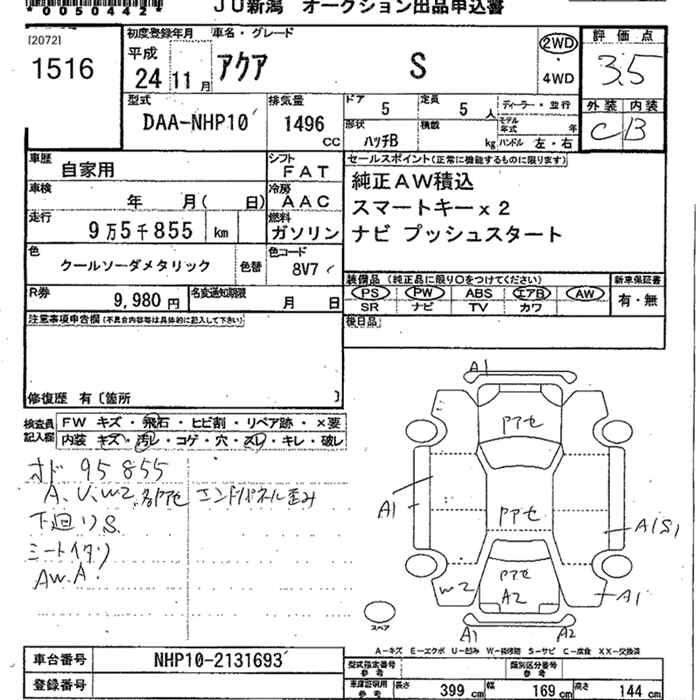 *0050442*
JU新潟 オークション出品申込書
[2072]
1516
初度登録年月
平成
24 11 月
車名・グレード
アクア S
2WD
・
4WD
評価点
3.5
外装 内装
C B
型式
DAA-NHP10
排気量
1496
CC
ドア
5
定員
5 人
形状
ハッチB
積載
kg
ディーラー・並行
モデル年式 年
ハンドル 左・右
車歴
自家用
シフト
FAT
車検
年 月( 日)
冷房
AAC
走行
9万5千855 km
燃料
ガソリン
色
クールソーダメタリック
色替
色コード
8V7
R券
9,980 円
名変通知期限
月 日
セールスポイント(正常に機能するものに限ります)
純正AW積込
スマートキーx2
ナビ プッシュスタート
装備品 (純正品に限り○をつけてください)
PS PW ABS エアB AW
SR ナビ TV カワ
新車保証書
有・無
後日品
注意事項申告欄(不具合内容等は具体的に記入して下さい)
修復歴 有〔箇所 〕
検査員
記入欄
FW キズ・飛石・ヒビ割・リペア跡・×要
内装 キズ・汚レ・コゲ・穴・スレ・キレ・破レ
オド 95855
A、U、W2、各PアセエンドPパネル歪み
下廻りS
シートイタリ
AW.A
A1
Pアセ
A1
Pアセ
A1S1
Pアセ
A2
W2
A1
A1
A2
スペア
A-キズ E-エクボ U-凹み W-板修跡 S-サビ C-腐食 XX-交換済
車台番号
NHP10-2131693
登録番号
型式指定番号
参考
類別区分番号
参考
車庫証明用
参考
長さ 399 cm 幅 169 cm 高さ 144 cm